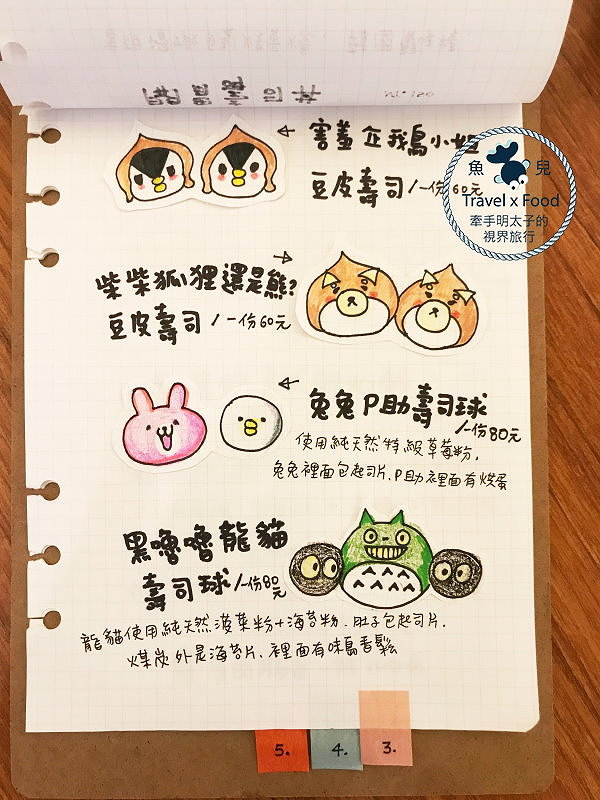 害羞企鵝鳥小姐
豆皮壽司/一份60元
魚兒
Travel x Food
牽手明太子的
視界旅行
柴柴狐狸還是熊?
豆皮壽司/一份60元
兔兔P助壽司球
/一份80元
使用純天然特級草莓粉,
兔兔裡面包起司片、P助裡面有炒蛋
黑嚕嚕龍貓
壽司球/一份80元
龍貓使用純天然菠菜粉+海苔粉、肚子包起司片、
煤炭外是海苔片、裡面有味島香鬆
5.
4.
3.